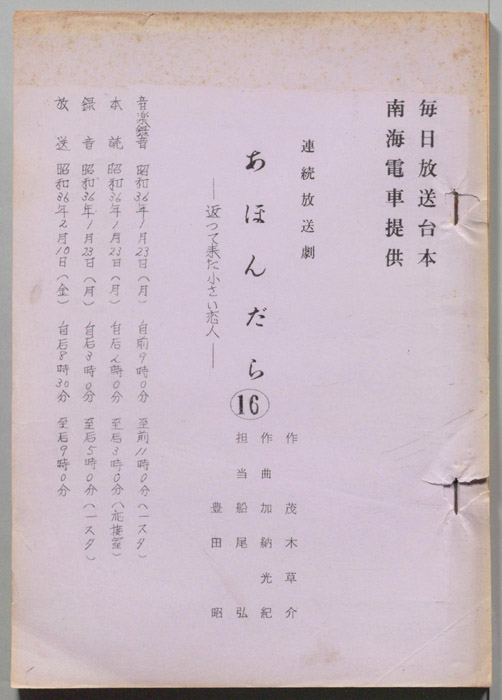 毎日放送台本
南海電車提供
連続放送劇
あほんだら⑯
―返って来た小さい恋人―
作　茂木草介
作曲　加納光紀
担当　船尾弘
豊田昭
音楽録音　昭和36年1月23日(月)　自前9時0分　至前11時0分(一スタ)
本読　昭和36年1月23日(月)　自后2時0分　至后3時0分(応接室)
録音　昭和36年1月23日(月)　自后3時0分　至后5時0分(一スタ)
放送　昭和36年2月10日(金)　自后8時30分　至后9時0分